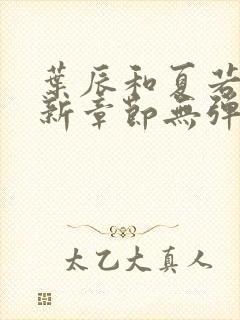 葉辰和夏若
新章節無彈
太乙大真人